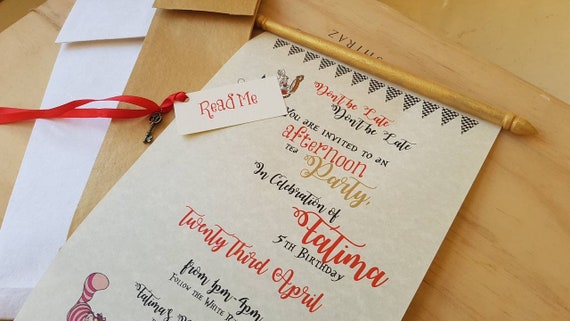 SHIRAZ
Read Me
Don't be Late
Don't be Late
You are invited to an
afternoon
tea Party,
In Celebration of
Fatima
5th Birthday
Twenty Third April
from 1pm-4pm
Follow the White R
Fatima's